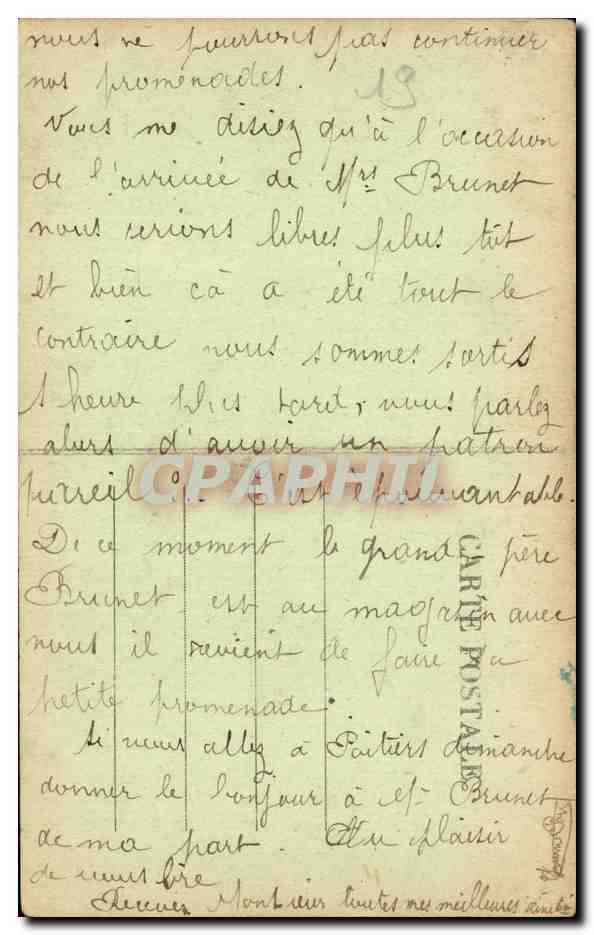 nous ne pourrons pas continuer
nos promenades.
19
Vous me disiez qu'à l'occasion
de l'arrivée de Mrs Brunet
nous serions libres plus tôt
et bien ca a été tout le
contraire nous sommes sortis
1 heure plus tard, vous parlez
alors d'avoir un patron
pareil. C'est épouvantable.
De ce moment le grand père
Brunet est au magasin avec
nous il revient de faire sa
petite promenade.
Si vous allez à Poitiers dimanche
donner le bonjour à Mr Brunet
de ma part. Au plaisir
de vous lire
Recevez Monsieur toutes mes meilleures amitiés
CARTE POSTALE
CPAPHIL